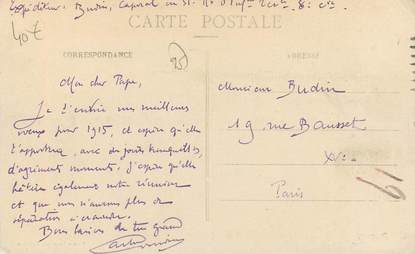 Expéditeur: Budin, Caporal au 31e
CARTE POSTALE
40€
CORRESPONDANCE
ADRESSE
95
Mon cher Papa,
Je t'envoie mes meilleurs
voeux pour 1915, et espère qu'elle
t'apportera, avec des jours tranquilles,
d'agréments moments. J'espère qu'elle
hâtera également notre réunion
et que nous n'aurons plus de
séparation à craindre.
Bons baisers de ton grand
Monsieur Budin
19, rue Bausset
XVe
Paris